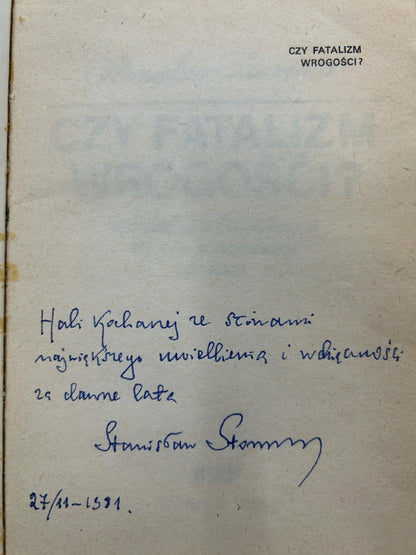 CZY FATALIZM
WROGOŚCI?
CZY FATALIZM
WROGOŚCI?
Hali Kochanej ze słowami
największego uwielbienia i wdzięczności
za dawne lata
Stanisław Stomma
27/11-1981.